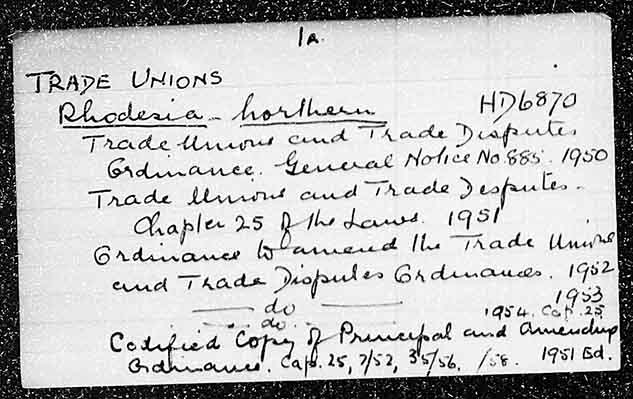 1A.
TRADE UNIONS
Rhodesia - Northern HD6870
Trade Unions and Trade Disputes
Ordinance. General Notice No. 885. 1950
Trade Unions and Trade Disputes -
Chapter 25 of the Laws. 1951
Ordinance to amend the Trade Unions
and Trade Disputes Ordinances. 1952
— do — 1953
— do — 1954. Cap. 25
Codified Copy of Principal and Amending
Ordinance. Cap. 25, 7/52, 35/56, /58. 1951 Ed.